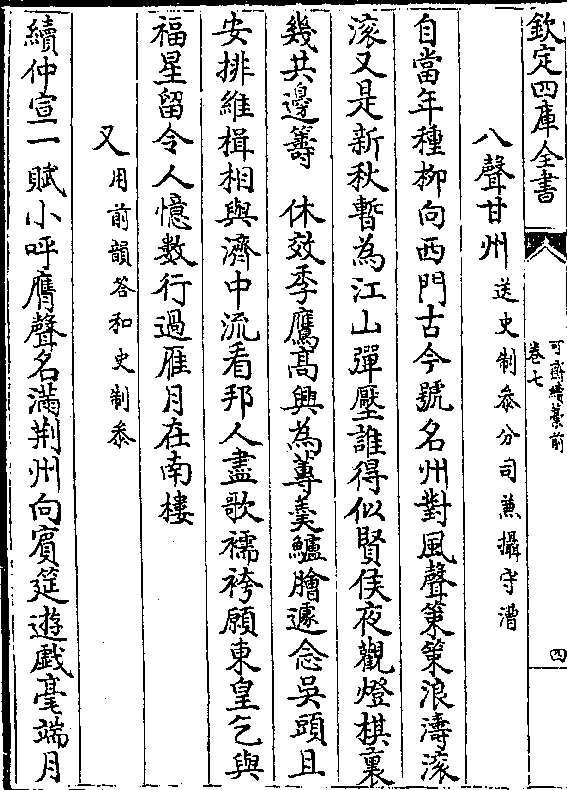 欽定四庫全書
可齋續藁前
卷七
四
八聲甘州送史制叅分司兼攝守漕
自當年種柳向西門古今號名州對風聲策策浪濤滚
滚又是新秋暫為江山彈壓誰得似賢侯夜觀燈棋裏
幾共邊籌　休效季鷹髙興為蓴羮鱸膾遽念吳頭且
安排維楫相與濟中流看邦人盡歌襦袴願東皇乞與
福星留令人憶數行過雁月在南樓
又用前韻答和史制叅
續仲宣一賦小呼鷹聲名滿荆州向賓筵遊戲毫端月